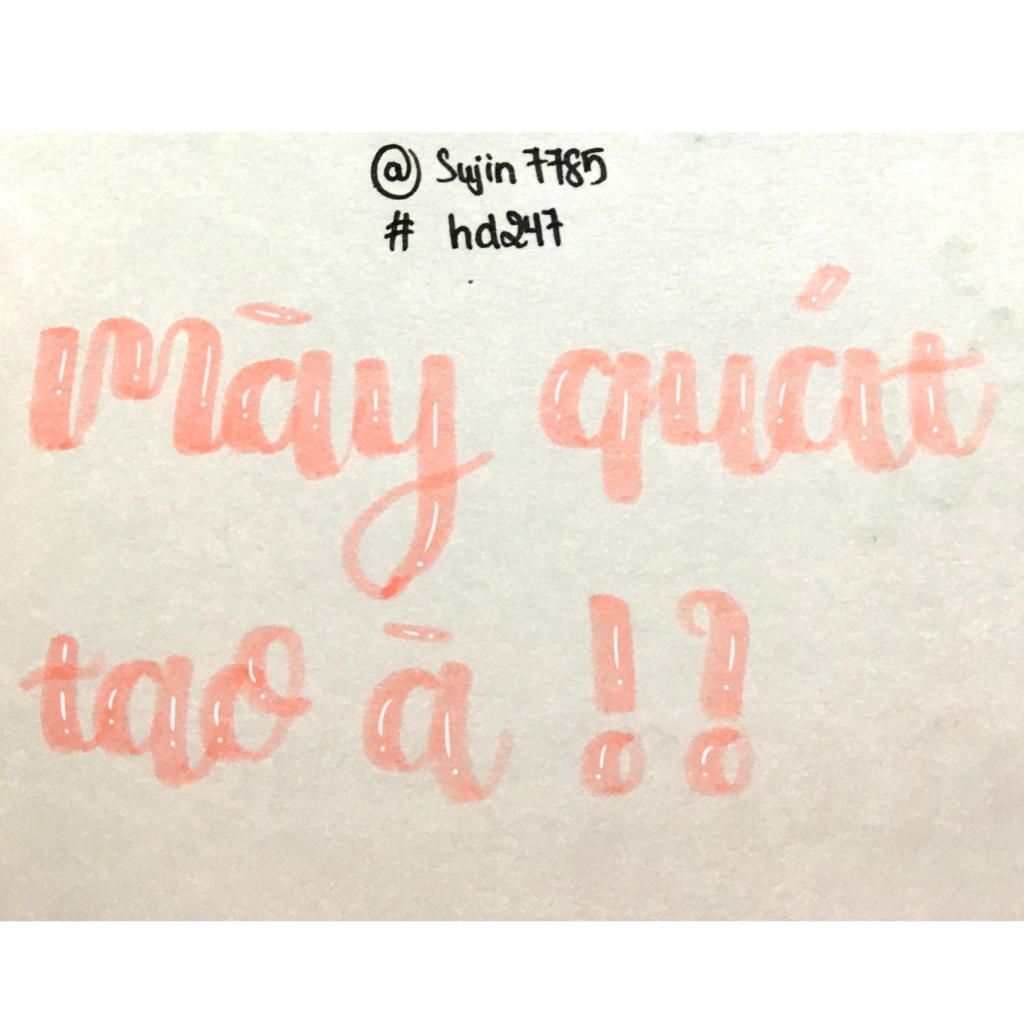 @ Sujin 7785
# hd247
Mày quát
tao à !?